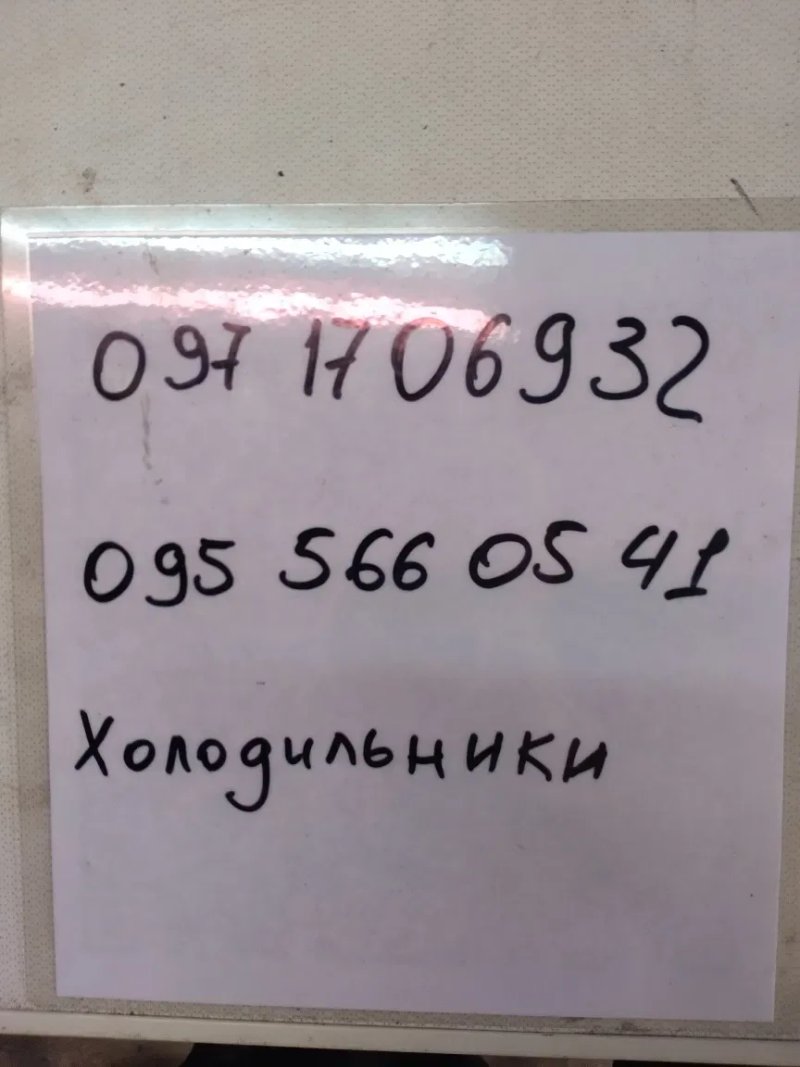 097 1706932
095 566 05 41
Холодильники